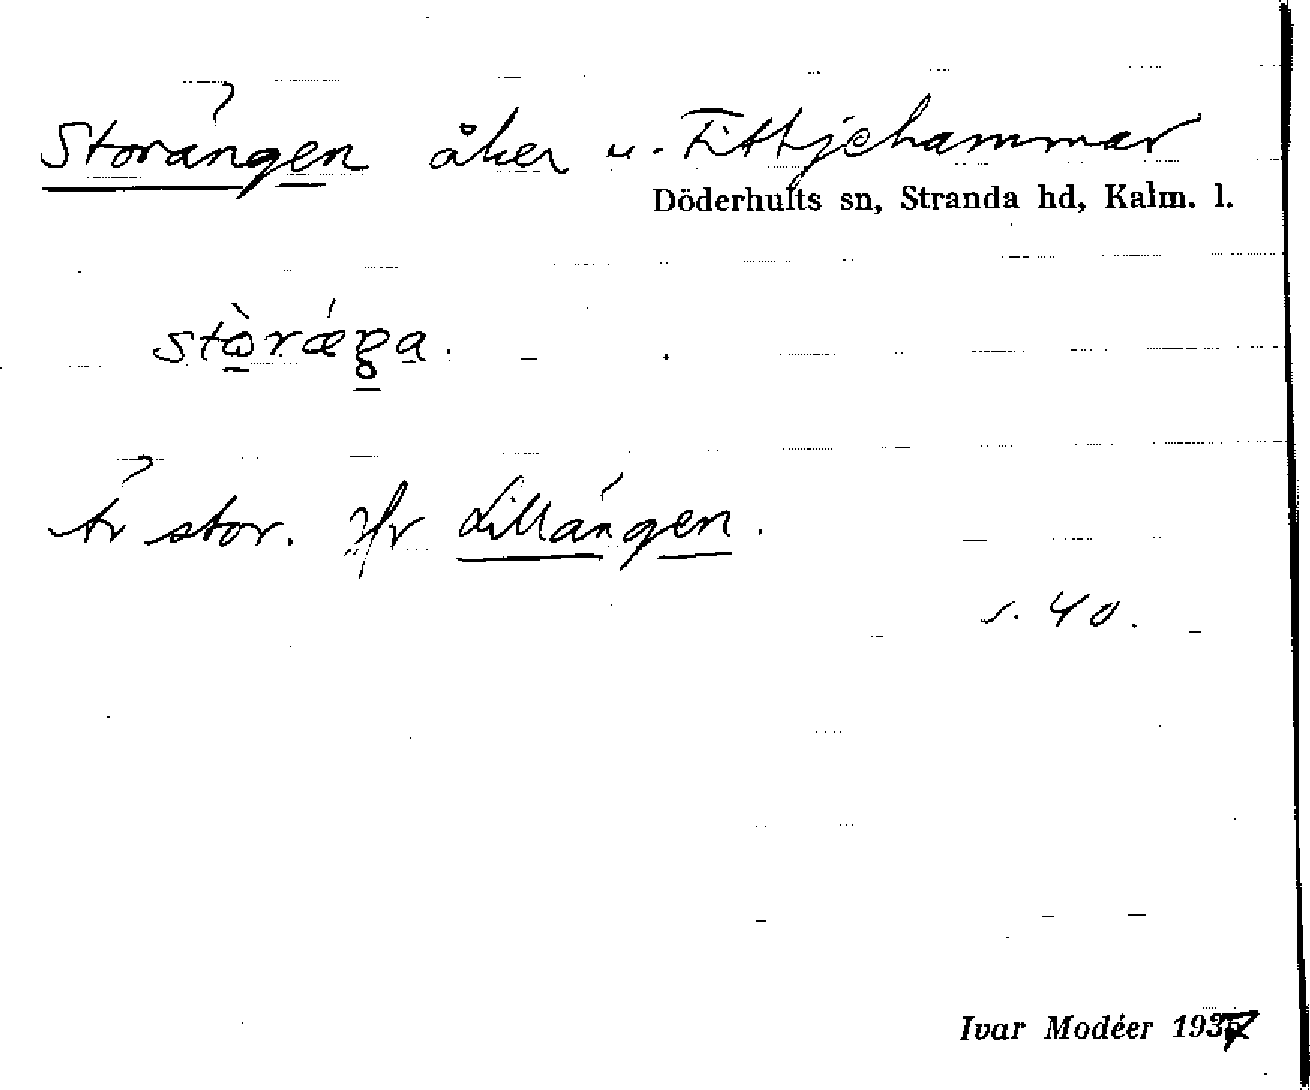 Storängen åker u. Fittjehammar
Döderhults sn, Stranda hd, Kalm. l.
stòrǽŋa.
Är stor. Jfr Lillängen.
s. 40.
Ivar Modéer 1937